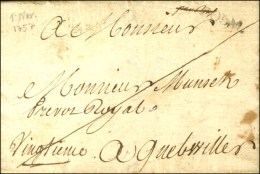 1 9br.
1757
A Monsieur
Monsieur Munsch
Prevot Royal
Vingtieme A Guebwiller